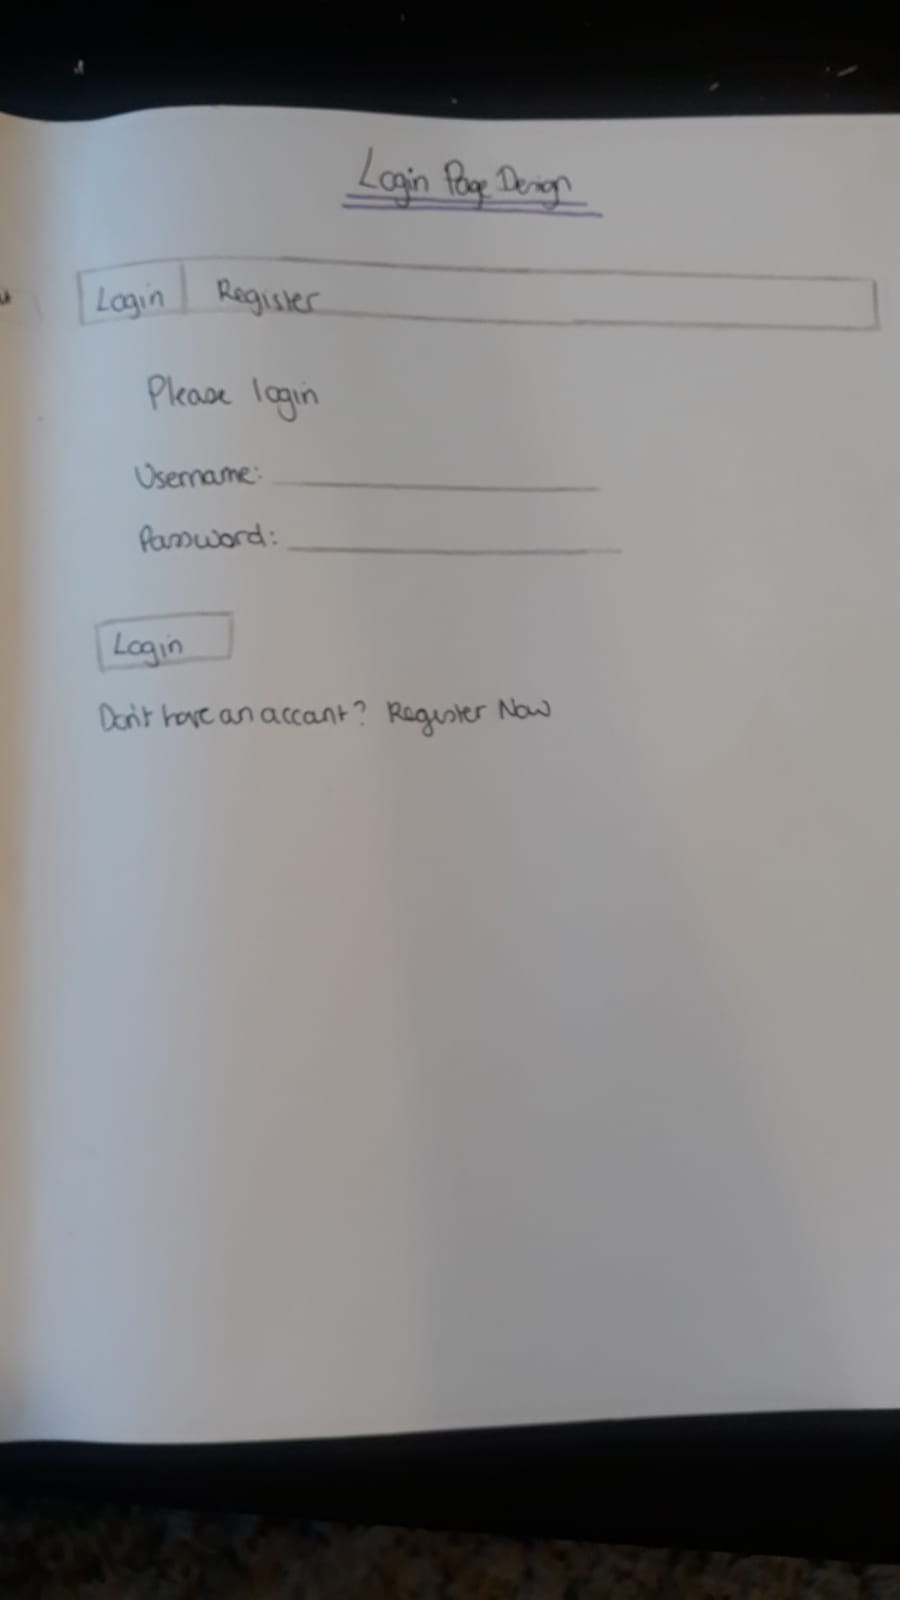 Login Page Design
Login Register
Please login
Username:
Password:
Login
Don't have an account? Register Now